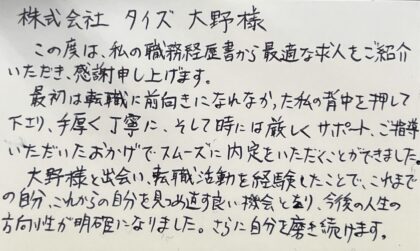 株式会社 タイズ 大野様
この度は、私の職務経歴書から最適な求人をご紹介
いただき、感謝申し上げます。
最初は転職に前向きになれなかった私の背中を押して
下さり、手厚く丁寧に、そして時には厳しくサポート、ご指導
いただいたおかげでスムーズに内定をいただくことができました。
大野様と出会い、転職活動を経験したことで、これまで
の自分、これからの自分を見つめ直す良い機会となり、今後の人生の
方向性が明確になりました。さらに自分を磨き続けます。